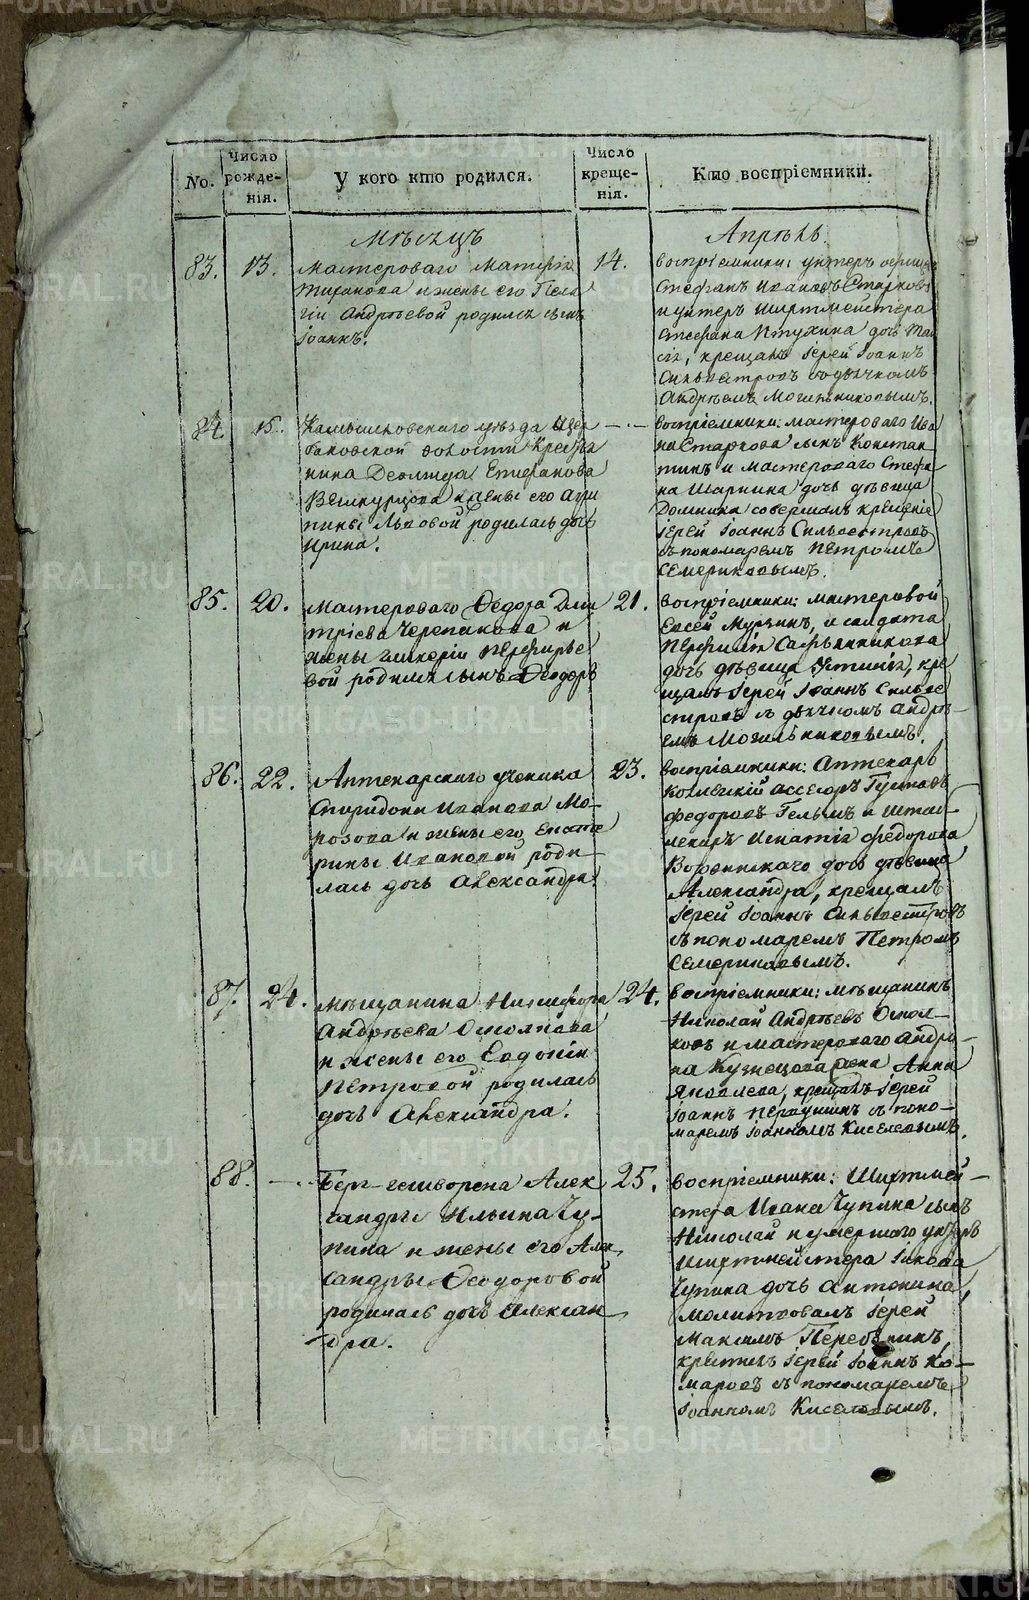 METRIKI.GASO-URAL.RU
No.
Число рожденія.
У кого кто родился.
Число крещенія.
Кто воспріемники.
Мѣсяцъ
Апрѣль.
83.
13.
Мастероваго
и жены его Пела
гіи Андрѣевой родился сынъ
Іоаннъ.
14.
воспріемники: унтеръ
Стефанъ Ивановъ
и унтеръ Шихтмейстера
Стефана Птухина дочь
крещалъ Іерей Іоаннъ
Сильвестровъ съ дьячкомъ
Андрѣемъ Могильниковымъ.
84.
15.
Камышловскаго уѣзда Щер
баковской волости Крестья
нина
и жены его Агри
пины Львовой родилась дочь
Ирина.
воспріемники: мастероваго Ива
на Старкова сынъ Констан
тинъ и мастероваго Стефа
на дочь дѣвица
Домника совершалъ крещеніе
Іерей Іоаннъ Сильвестровъ
съ пономаремъ Петромъ
Семериковымъ.
85.
20.
Мастероваго Ѳедора Дми
трiева Черепанова и
жены Гликеріи Перфирье
вой родился сынъ Ѳеодоръ
21.
воспріемники: мастеровой
Евсей Мурзинъ, и солдата
Перфилія
дочь дѣвица Устинія, кре
щалъ Іерей Іоаннъ Сильве
стровъ съ дьячкомъ Андрѣ-
емъ Могильниковымъ.
86.
22.
Аптекарскаго ученика
Спиридона Иванова Мо-
розова и жены его Екате
рины Ивановой роди-
лась дочь Александра.
23.
воспріемники: Аптекарь
Колежскій ассесоръ Густавъ
Федоровъ Гельмъ и Штаб-
лекаря Игнатія Федорова
дочь дѣвица
Александра, крещалъ
Іерей Іоаннъ Сильвестровъ
съ пономаремъ Петромъ
Семериковымъ.
87.
24.
Мѣщанина Никифора
Андрѣева
и жены его Евдокіи
Петровой родилась
дочь Александра.
24.
воспріемники: мѣщанинъ
Николай Андрѣевъ
и мастероваго Андро-
на Кузнецова жена Анна
Яковлева, крещалъ Іерей
Іоаннъ Первушинъ съ поно-
маремъ Іоанномъ Киселевымъ.
88.
Берг-гешворена Алек
сандры Ильина Чу-
пина и жены его Алек
сандры Ѳеодоровой
родилась дочь Алексан
дра.
25.
воспріемники: Шихтмей-
стера Ивана Чупина сынъ
Николай и умершаго унтеръ
шихтмейстера Іякова
Чупина дочь Антонина,
молитвовалъ Іерей
Максимъ
крестилъ Іерей Іоаннъ Ко-
маровъ съ пономаремъ
Іоанномъ Киселевымъ.